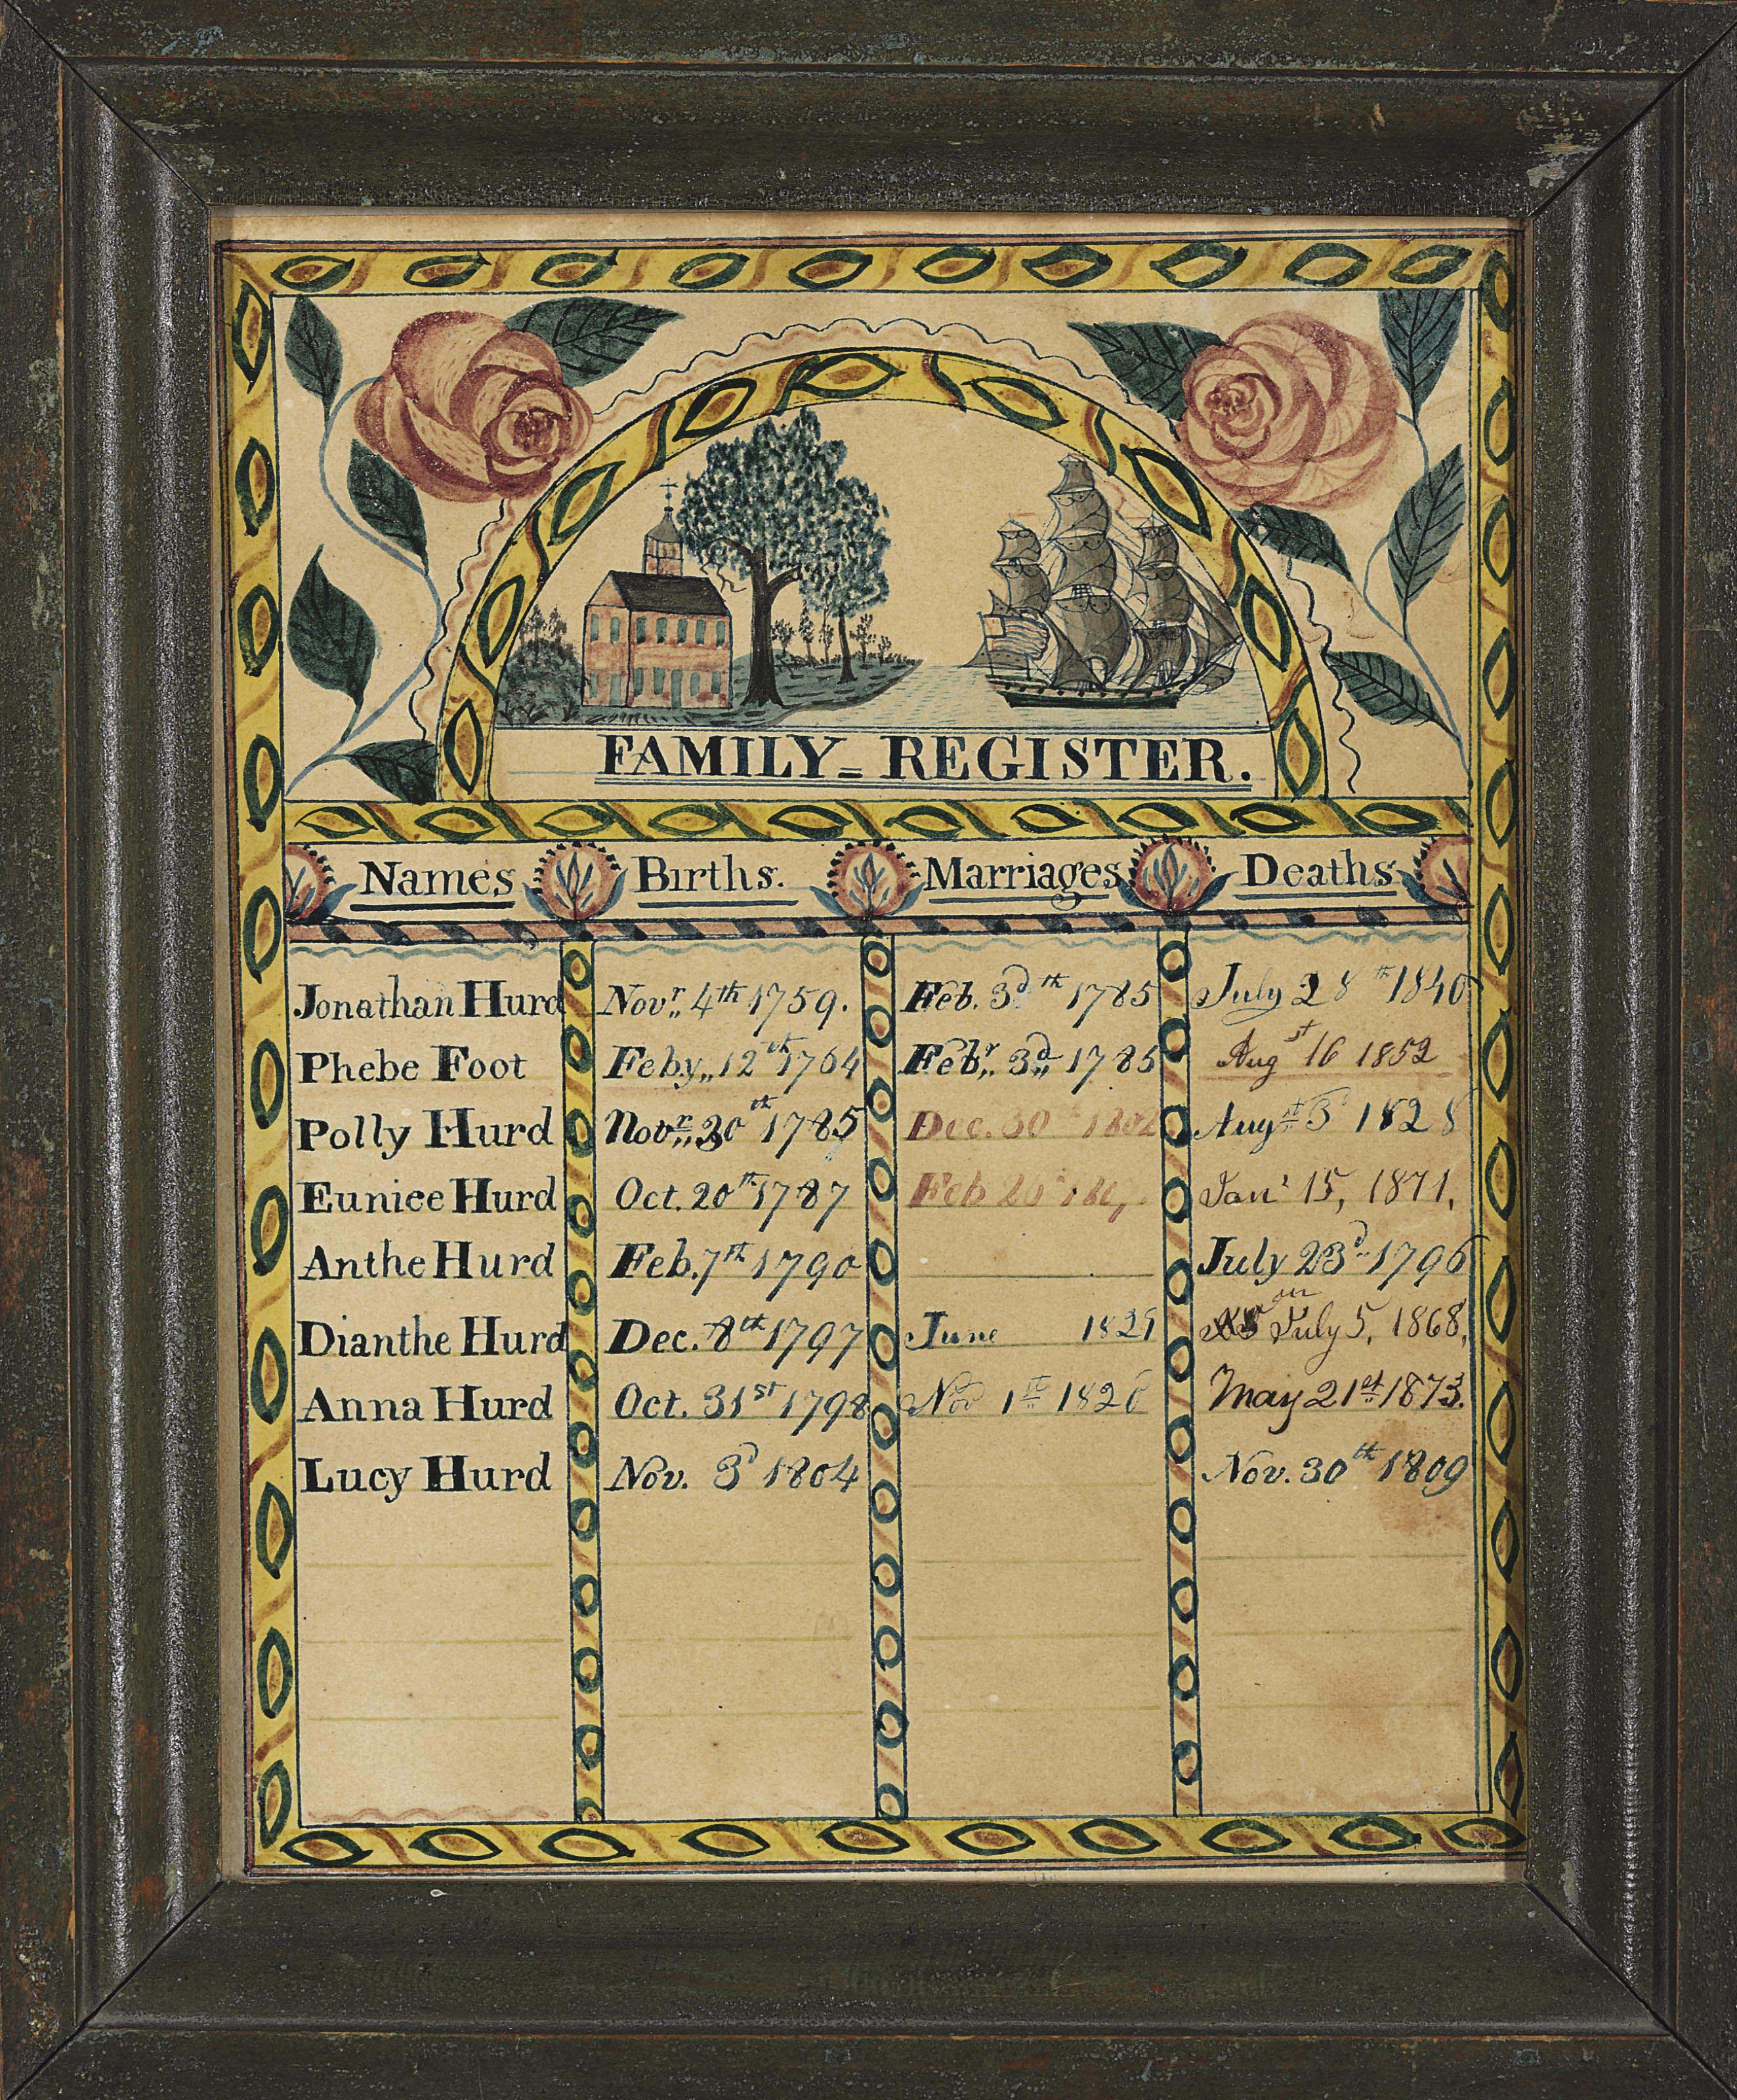 FAMILY = REGISTER.
Names Births. Marriages Deaths
Jonathan Hurd Novr. 4th 1759. Feb. 3d th 1785 July 28th 1840
Phebe Foot Feby,, 12th 1764 Febr,, 3d,, 1785 Augst 16 1852
Polly Hurd Novr,, 30th 1785 Dec. 30 Augst 3d 1828
Eunice Hurd Oct. 20th 1787 Feb 20 Jany 15, 1871,
Anthe Hurd Feb. 7th 1790 July 23d 1796
Dianthe Hurd Dec. 8th 1797 June 1829 July 5, 1868,
Anna Hurd Oct. 31st 1798 Nov 1st 1826 May 21st 1873.
Lucy Hurd Nov. 3d 1804 Nov. 30th 1809